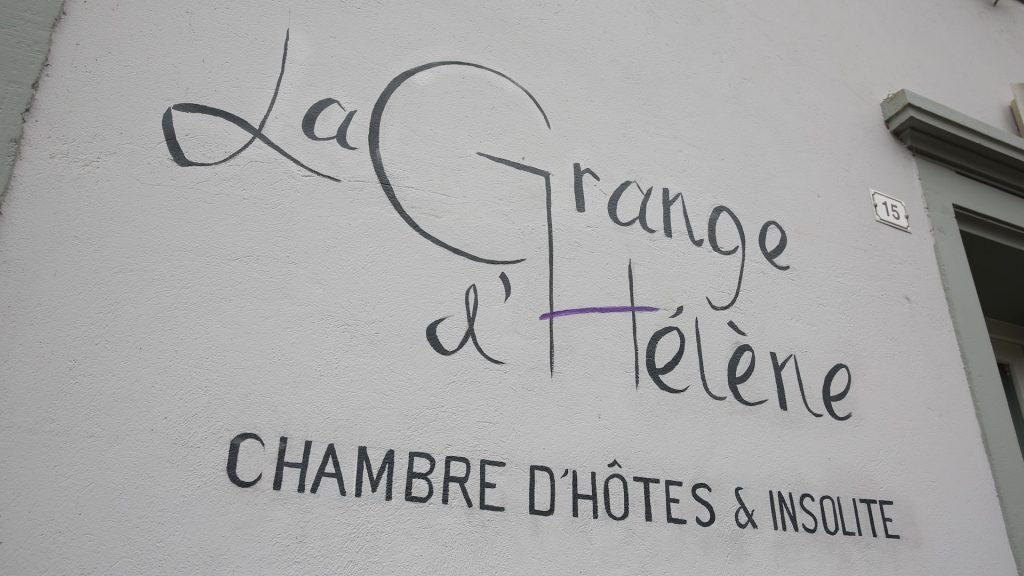 La Grange
15
d'Hélène
CHAMBRE D'HÔTES & INSOLITE